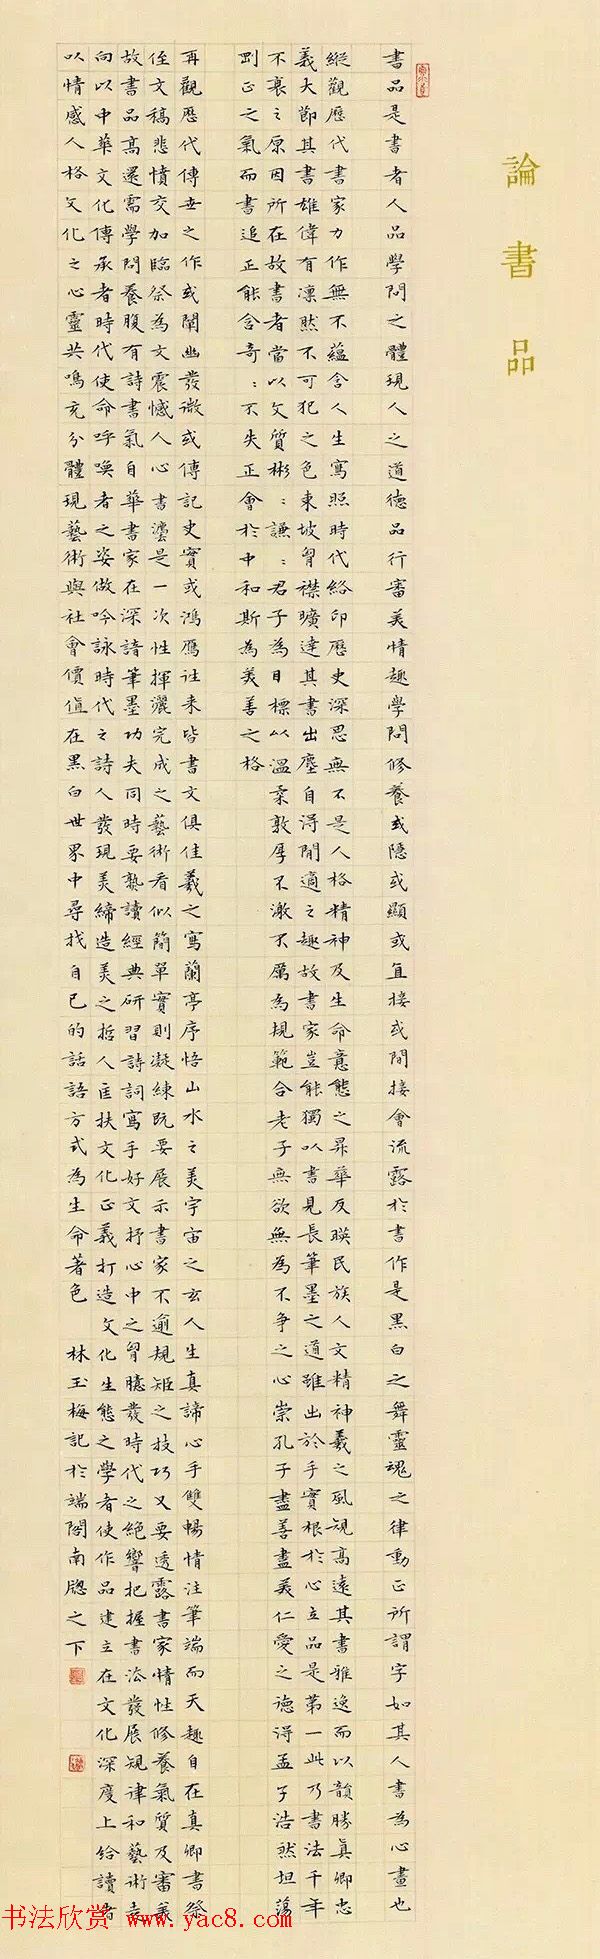 論書品
書品是書者人品學問之體現人之道德品行審美情趣學問修養或隱或顯或直接或間接會流露於書作是黑白之舞靈魂之律動正所謂字如其人書為心畫也
縱觀歷代書家力作無不蘊含人生寫照時代絡印歷史深思無不是人格精神及生命意態之昇華反映民族人文精神羲之風規高遠其書雅逸而以韻勝真卿忠
義大節其書雄偉有凛然不可犯之色東坡胷襟曠達其書出塵自得閒適之趣故書家豈能獨以書見長筆墨之道雖出於手實根於心立品是第一此乃書法千年
不衰之原因所在故書者當以文質彬：謙：君子為目標以溫柔敦厚不激不厲為規範合老子無欲無為不争之心崇孔子盡善盡美仁愛之德得孟子浩然坦蕩
剛正之氣而書追正能含奇：不失正會於中和斯為美善之格
再觀歷代傳世之作或闡幽發微或傳記史實或鴻雁往来皆書文俱佳羲之寫蘭亭序悟山水之美宇宙之玄人生真諦心手雙暢情注筆端而天趣自在真卿書祭
侄文稿悲憤交加臨祭為文震憾人心書灋是一次性揮灑完成之藝術看似簡單實則凝練既要展示書家不逾規矩之技巧又要透露書家情性修養氣質及審美
故書品高還需學問養腹有詩書氣自華書家在深諳筆墨功夫同時要熟讀經典研習詩詞寫手好文抒心中之胷臆發時代之絕響把握書法發展規律和藝術走
向以中華文化傳承者時代使命呼喚者之姿做吟詠時代之詩人發現美締造美之哲人匡扶文化正義打造文化生態之學者使作品建立在文化深度上給讀者
以情感人格文化之心靈共鳴充分體現藝術與社會價值在黑白世界中尋找自己的話語方式為生命著色 林玉梅記於端閤南牕之下
书法欣赏 www.yac8.com